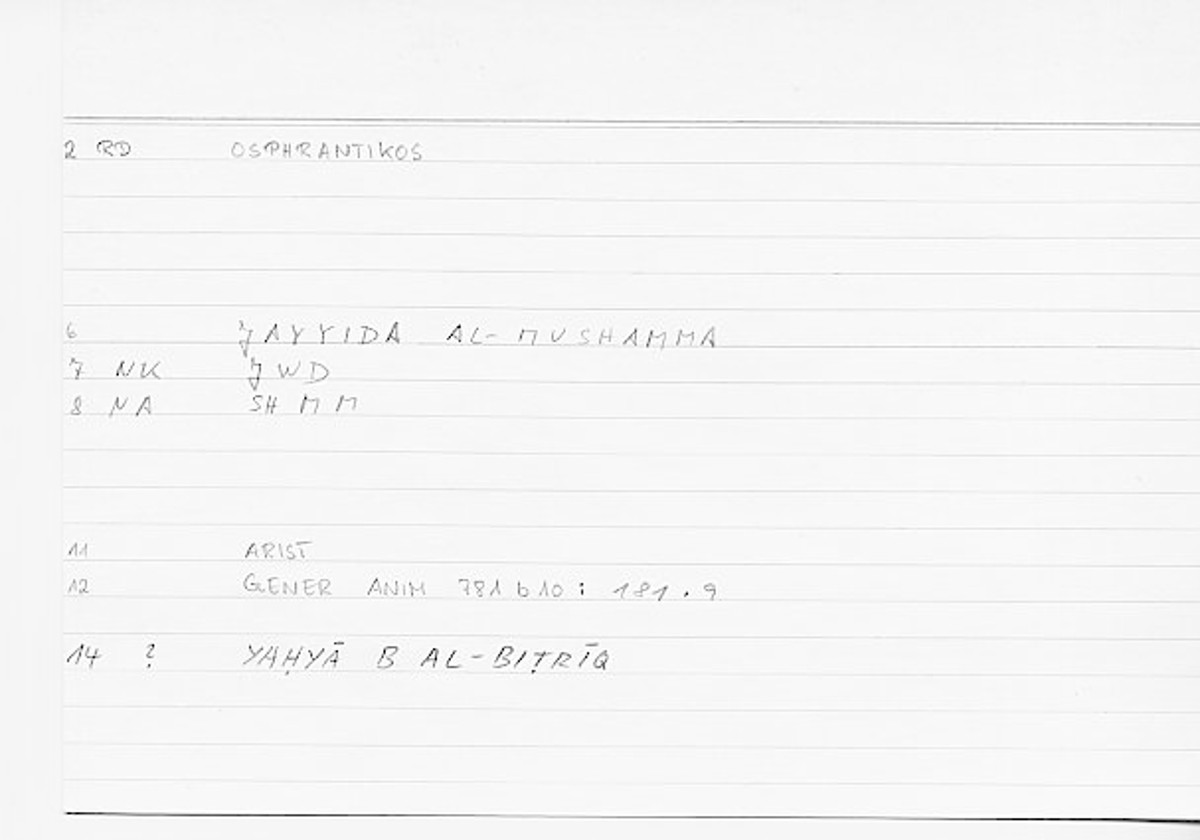 2 RD OSPHRANTIKOS
6 JAYYIDA AL-MUSHAMMA
7 NK JWD
8 NA SHMM
11 ARIST
12 GENER ANIM 781 b 10 : 181.9
14 ? YAḤYĀ B AL-BIṬRĪQ